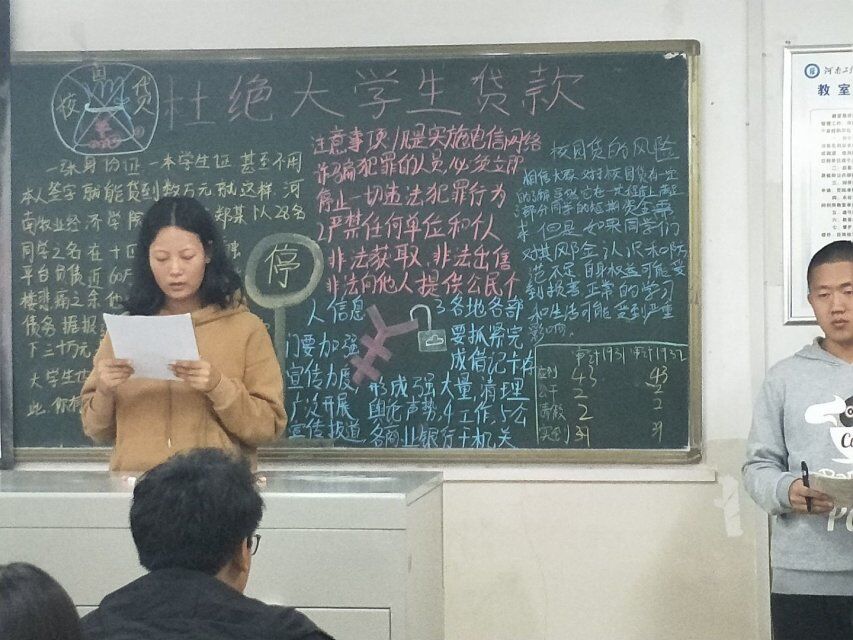 校园贷
杜绝大学生贷款
一张身份证 一本学生证 甚至不用
本人签字就能贷到数万元 就这样 河
南牧业经济学院
郑某以28名
同学之名在十
平台负债近60万
楼悲痛之余他
债务据报
下三十万元
大学生
此
停
注意事项1凡是实施电信网络
诈骗犯罪的人员,必须立即
停止一切违法犯罪行为
2严禁任何单位和个人
非法获取、非法出售
非法向他人提供公民个
人信息
3各地各部
门要加强
要抓紧完
成备记卡存
宣传力度,形成强大量,清理
广泛开展 舆论声势,4工作,5公
宣传报道,各商业银行十机关
校园贷的风险
相信大家对校园贷有一定
的了解虽然它在一定程上满足
部分同学的短期资金需
求但是如果同学们
对其风险金认识和防
范不足自身权益可能受
到损害正常的学习
和生活可能受到严重
影响。
审计1931 审计1932
应到 43 43
公干 2 2
请假 2 2
实到 39 39
河南工
教室